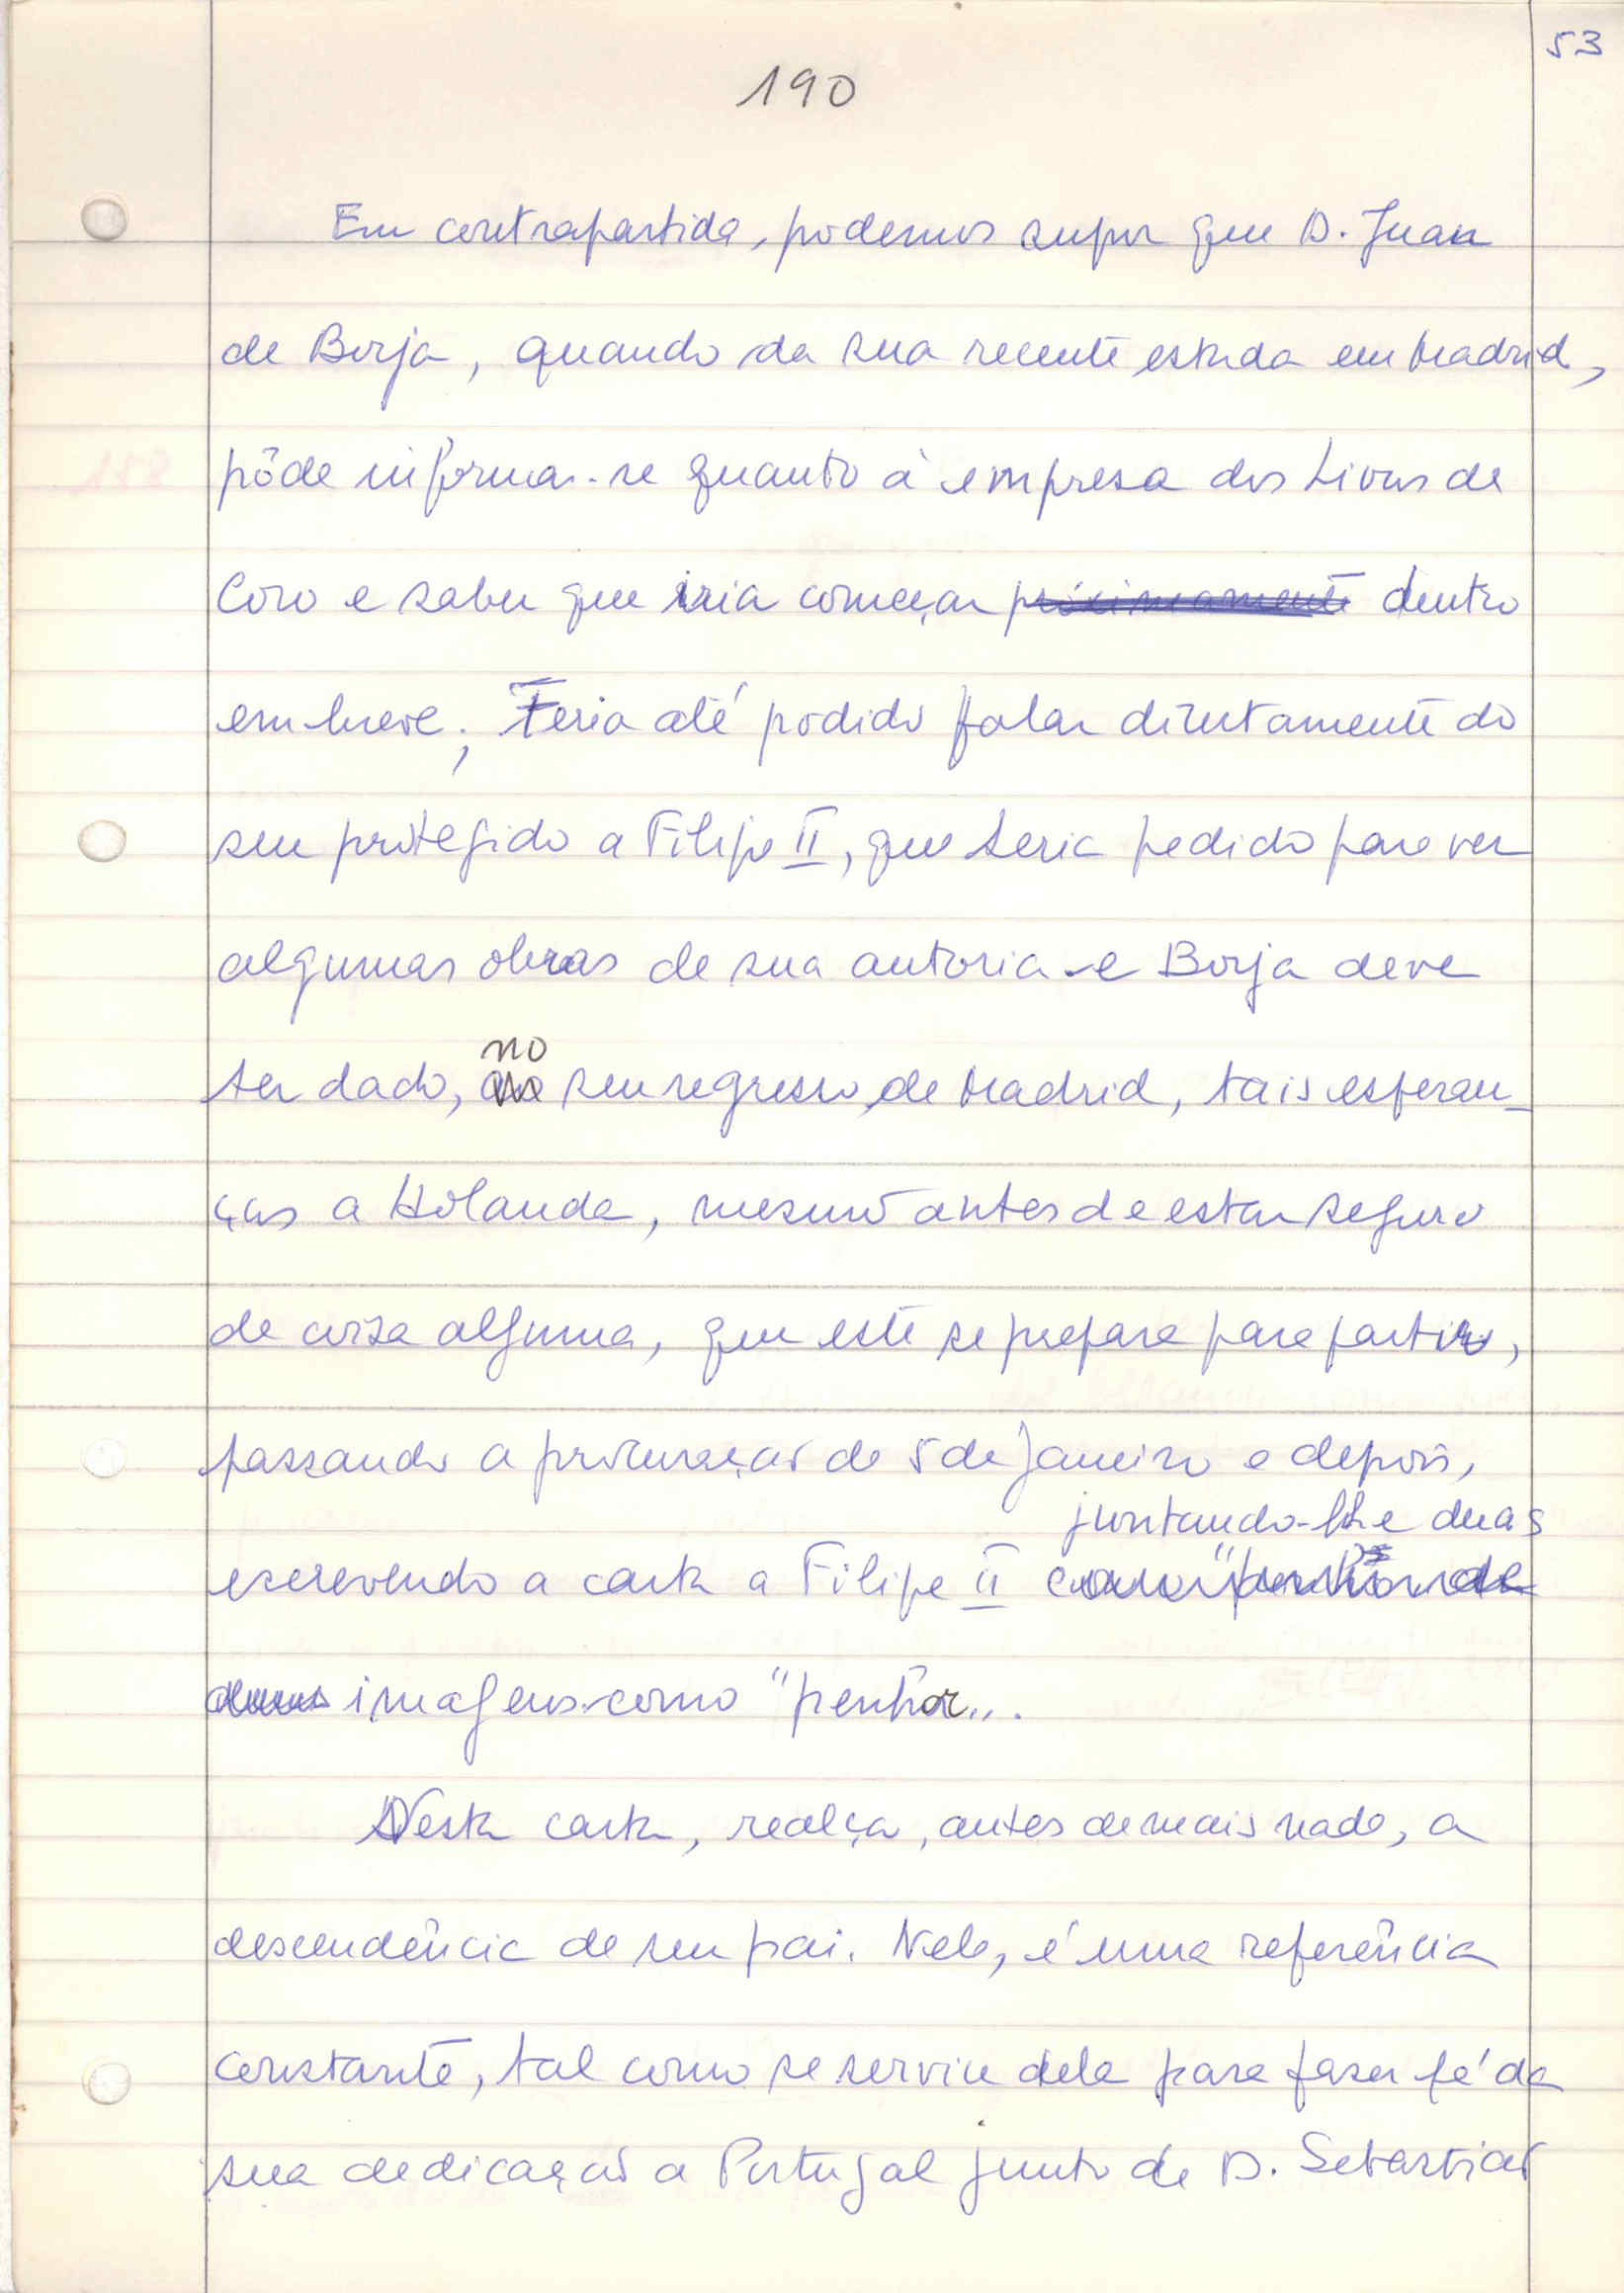 53
190
Em contrapartida, podemos supor que D. Juan
de Borja, quando da sua recente estada em Madrid,
pôde informar-se quanto à empresa dos Livros de
Coro e saber que iria começar próximamente dentro
em breve; Teria até podido falar directamente do
seu protegido a Filipe II, que teria pedido para ver
algumas obras de sua autoria e Borja deve
no
ter dado, seu regresso, de Madrid, tais esperan-
ças a Holanda, mesmo antes de estar seguro
de coisa alguma, que este se prepara para partir,
passando a procuração de 5 de Janeiro e depois,
juntando-lhe duas
escrevendo a carta a Filipe II
imagens como "penhor".
Nesta carta, realça, antes de mais nada, a
descendência de seu pai. Nele, é uma referência
constante, tal como se serviu dele para fazer fé da
sua dedicação a Portugal junto de D. Sebastião